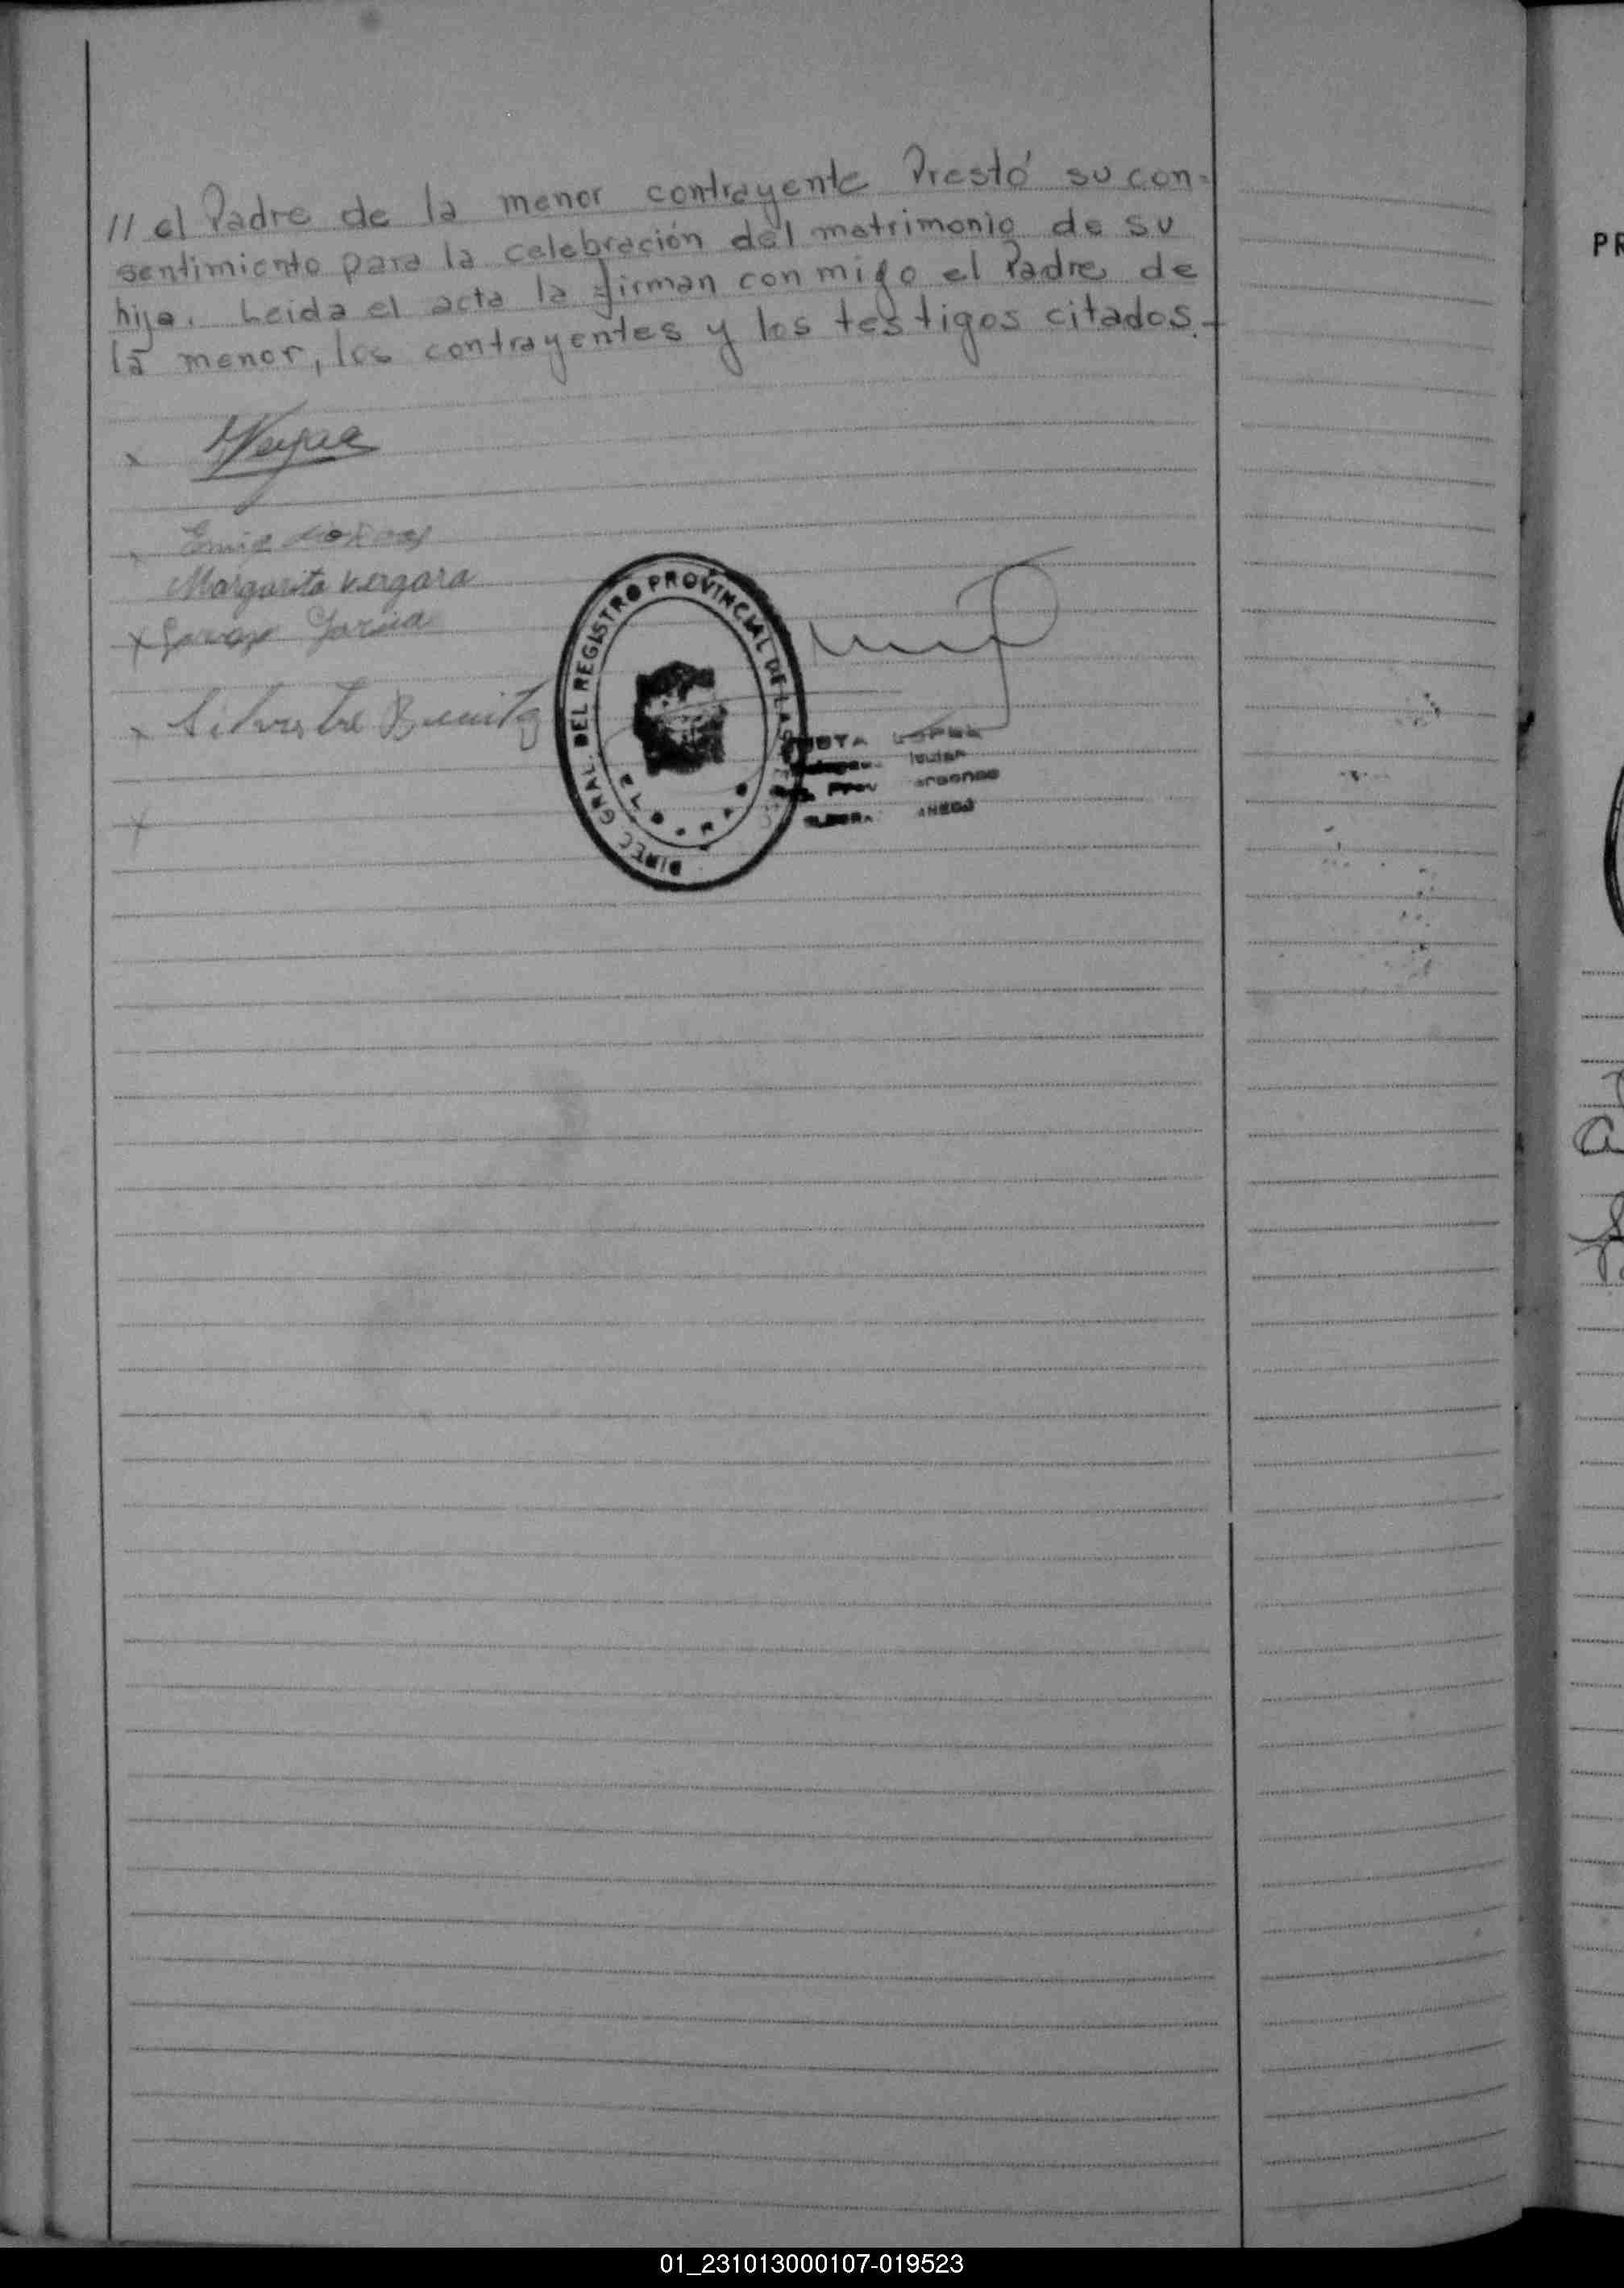 // el Padre de la menor contrayente Prestó su con-
sentimiento para la celebración del matrimonio de su
hija. Leida el acta la firman con migo el Padre de
la menor, los contrayentes y los testigos citados.-
x
Margarita Vergara
x Garcia
x Silvestre Benitez
x
DIREC. GRAL. DEL REGISTRO PROVINCIAL DE LAS
LOPEZ
PR
01_231013000107-019523